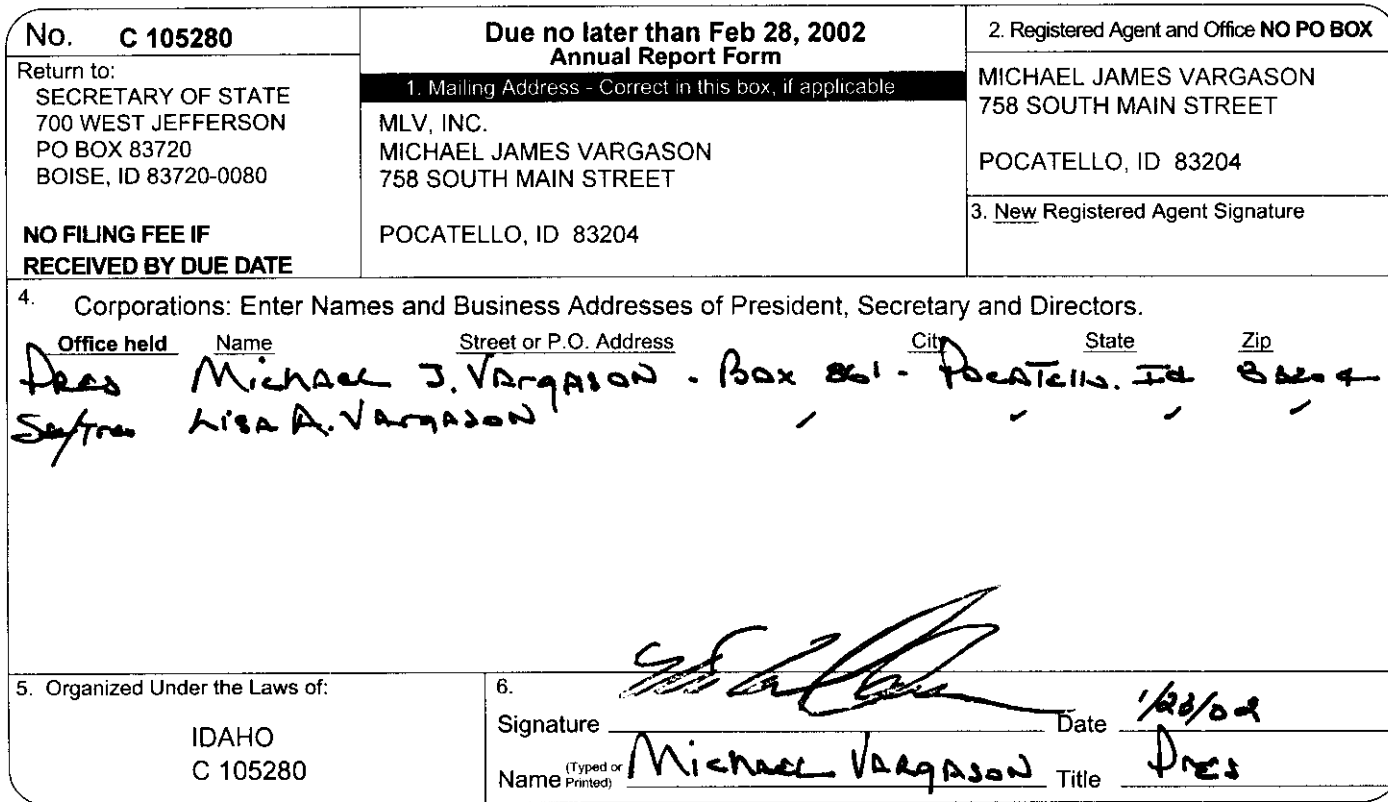 No. C 105280
Return to:
SECRETARY OF STATE
700 WEST JEFFERSON
PO BOX 83720
BOISE, ID 83720-0080
NO FILING FEE IF
RECEIVED BY DUE DATE
Due no later than Feb 28, 2002
Annual Report Form
1. Mailing Address - Correct in this box, if applicable
MLV, INC.
MICHAEL JAMES VARGASON
758 SOUTH MAIN STREET
POCATELLO, ID 83204
2. Registered Agent and Office NO PO BOX
MICHAEL JAMES VARGASON
758 SOUTH MAIN STREET
POCATELLO, ID 83204
3. New Registered Agent Signature
4. Corporations: Enter Names and Business Addresses of President, Secretary and Directors.
Office held Name Street or P.O. Address City State Zip
Pres Michael J. Vargason - Box 861 - Pocatello. Id 83204
Sec/Tres Lisa A. Vargason
5. Organized Under the Laws of:
IDAHO
C 105280
6.
Signature Date 1/23/02
Name (Typed or Printed) Michael Vargason Title Pres